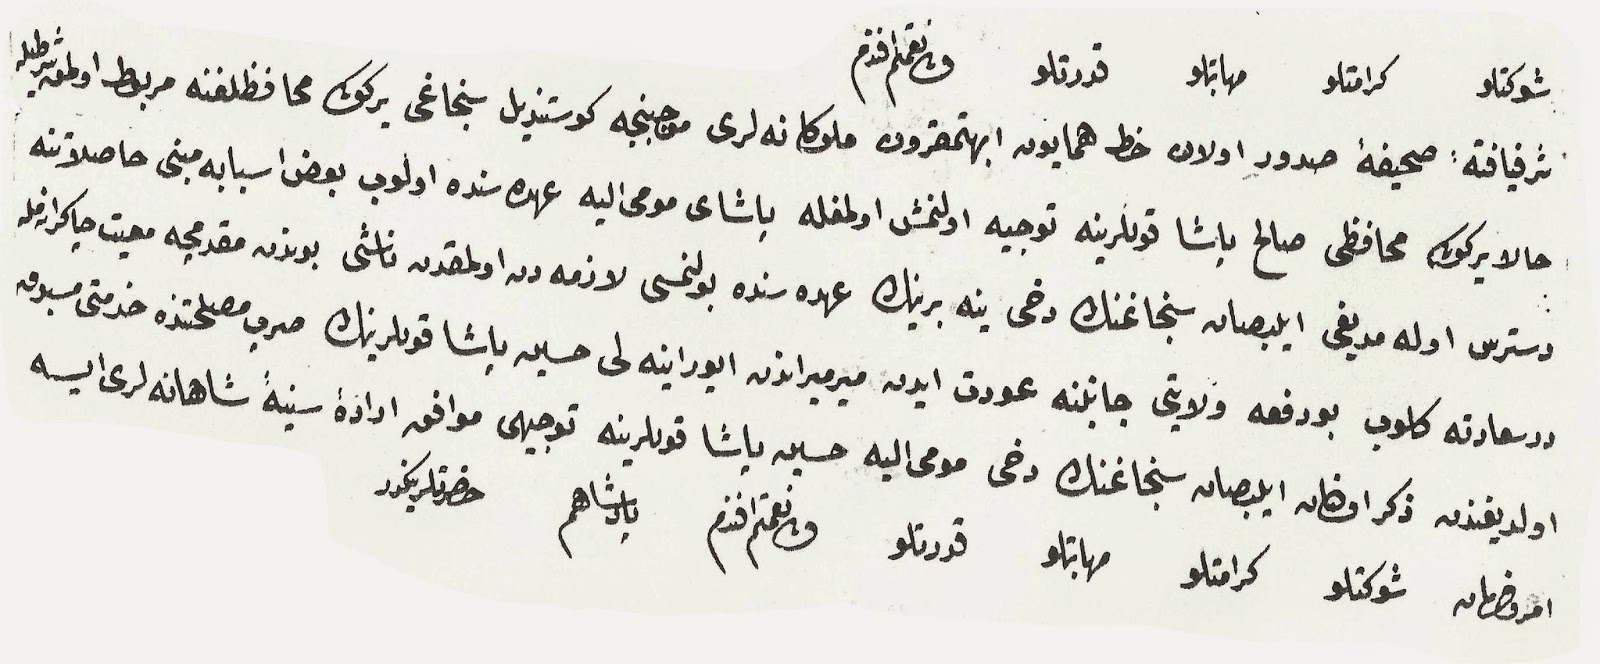 شوكتلو كرامتلو مهابتلو قدرتلو ولى نعمتم افندم
شرفيافتهٔ صحيفهٔ صدور اولان خط همايون ابهتمقرون ملوكانه لرى موجبنجه كوستنديل سنجاغى يركوك محافظلغنه مربوط اولمق شرطيله
حالا يركوك محافظى صالح پاشا قوللرينه توجيه اولنمش اولمغله پاشاى مومى اليه عهده سنده اولوب بعض اسبابه مبنى حاصلاتنه
دسترس اوله مديغى ايلبصان سنجاغنك دخى ينه برينك عهده سنده بولنمسى لازمه دن اولمقدن ناشى بوندن مقدمجه معيت چاكرانه مله
درسعادته كلوب بودفعه ولايتى جانبنه عودت ايدن ميرميراندن ابوراينه لى حسين پاشا قوللرينك صرب مصلحتنده خدمتى مسبوق
اولديغندن ذكر اولنان ايلبصان سنجاغنك دخى مومى اليه حسين پاشا قوللرينه توجيهى موافق ارادهٔ سنيهٔ شاهانه لرى ايسه
امر وفرمان شوكتلو كرامتلو مهابتلو قدرتلو ولى نعمتم افندم پادشاهم حضرتلرينكدر